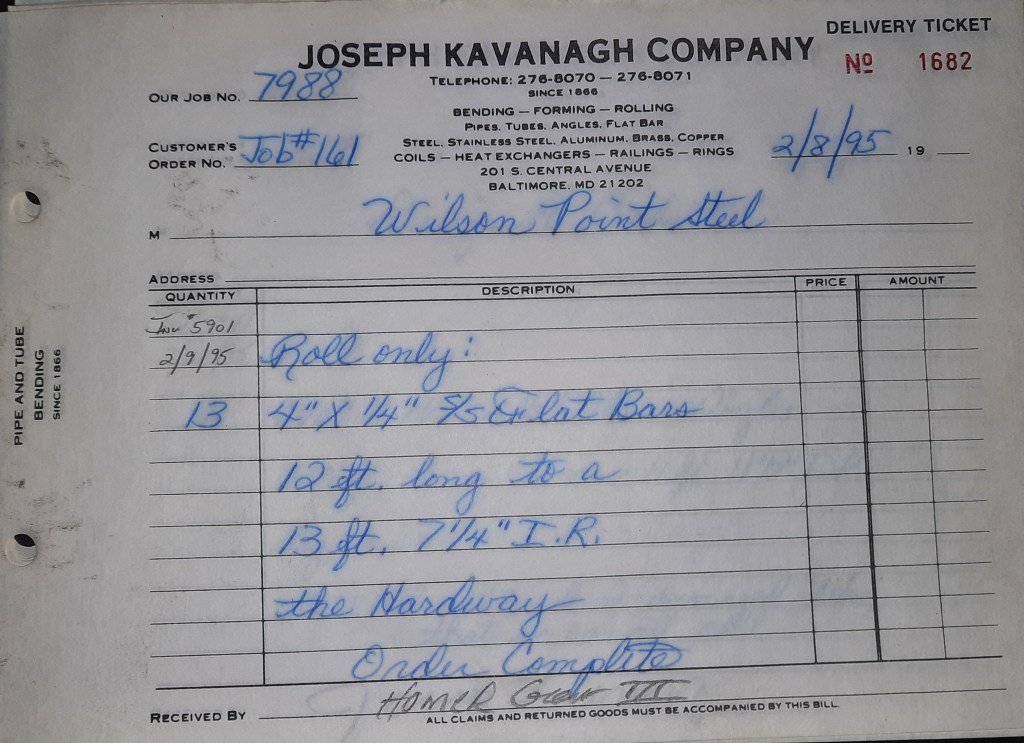 DELIVERY TICKET
JOSEPH KAVANAGH COMPANY
Nº 1682
TELEPHONE: 276-8070 — 276-8071
SINCE 1866
OUR JOB NO. 7988
BENDING — FORMING — ROLLING
PIPES, TUBES, ANGLES, FLAT BAR
CUSTOMER'S
ORDER NO. Job #161
STEEL, STAINLESS STEEL, ALUMINUM, BRASS, COPPER
COILS — HEAT EXCHANGERS — RAILINGS — RINGS
2/8/95 19
201 S. CENTRAL AVENUE
BALTIMORE, MD 21202
M Wilson Point Steel
ADDRESS
QUANTITY DESCRIPTION PRICE AMOUNT
Inv # 5901
2/9/95 Roll only:
13 4" X 1/4" S/S Flat Bars
12 ft. long to a
13 ft. 7 1/4" I.R.
the Hardway
Order Complete
RECEIVED BY Homer III
ALL CLAIMS AND RETURNED GOODS MUST BE ACCOMPANIED BY THIS BILL
PIPE AND TUBE
BENDING
SINCE 1866